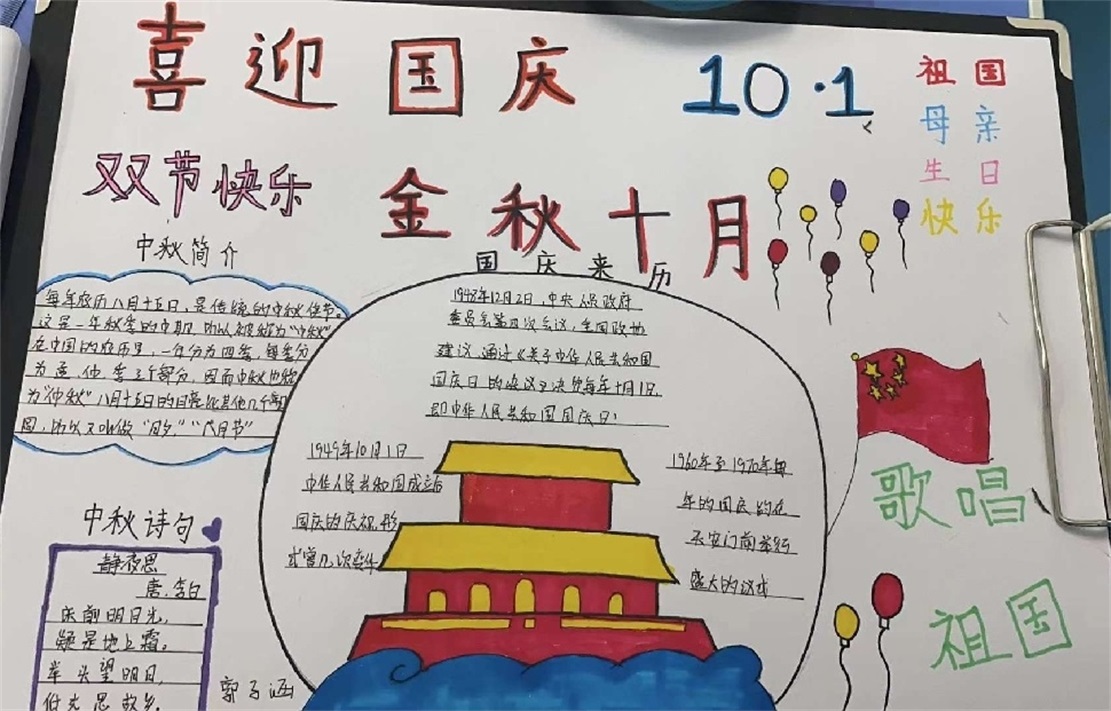 喜迎国庆
10·1
祖国
母亲
生日
快乐
双节快乐
金秋十月
中秋简介
每年农历八月十五日，是传统的中秋佳节。
这是一年秋季的中期，所以被称为“中秋”
在中国的农历里，一年分为四季，每季分
为孟、仲、季三个部分，因而中秋也称
为“仲秋”八月十五日的月亮比其他几个
圆，所以又叫做“月夕”“八月节”
国庆来历
1948年12月2日，中央人民政府
委员会第四次会议，全国政协
建议，通过《关于中华人民共和国
国庆日的决议》决定每年十月1日，
即中华人民共和国国庆日！
1949年10月1日
中华人民共和国成立后
国庆的庆祝形
式曾几次变化
1960年至1970年每
年的国庆均在
天安门前举行
盛大的仪式
歌唱
祖国
中秋诗句
静夜思
唐·李白
床前明月光，
疑是地上霜。
举头望明月，
低头思故乡。
郭子涵